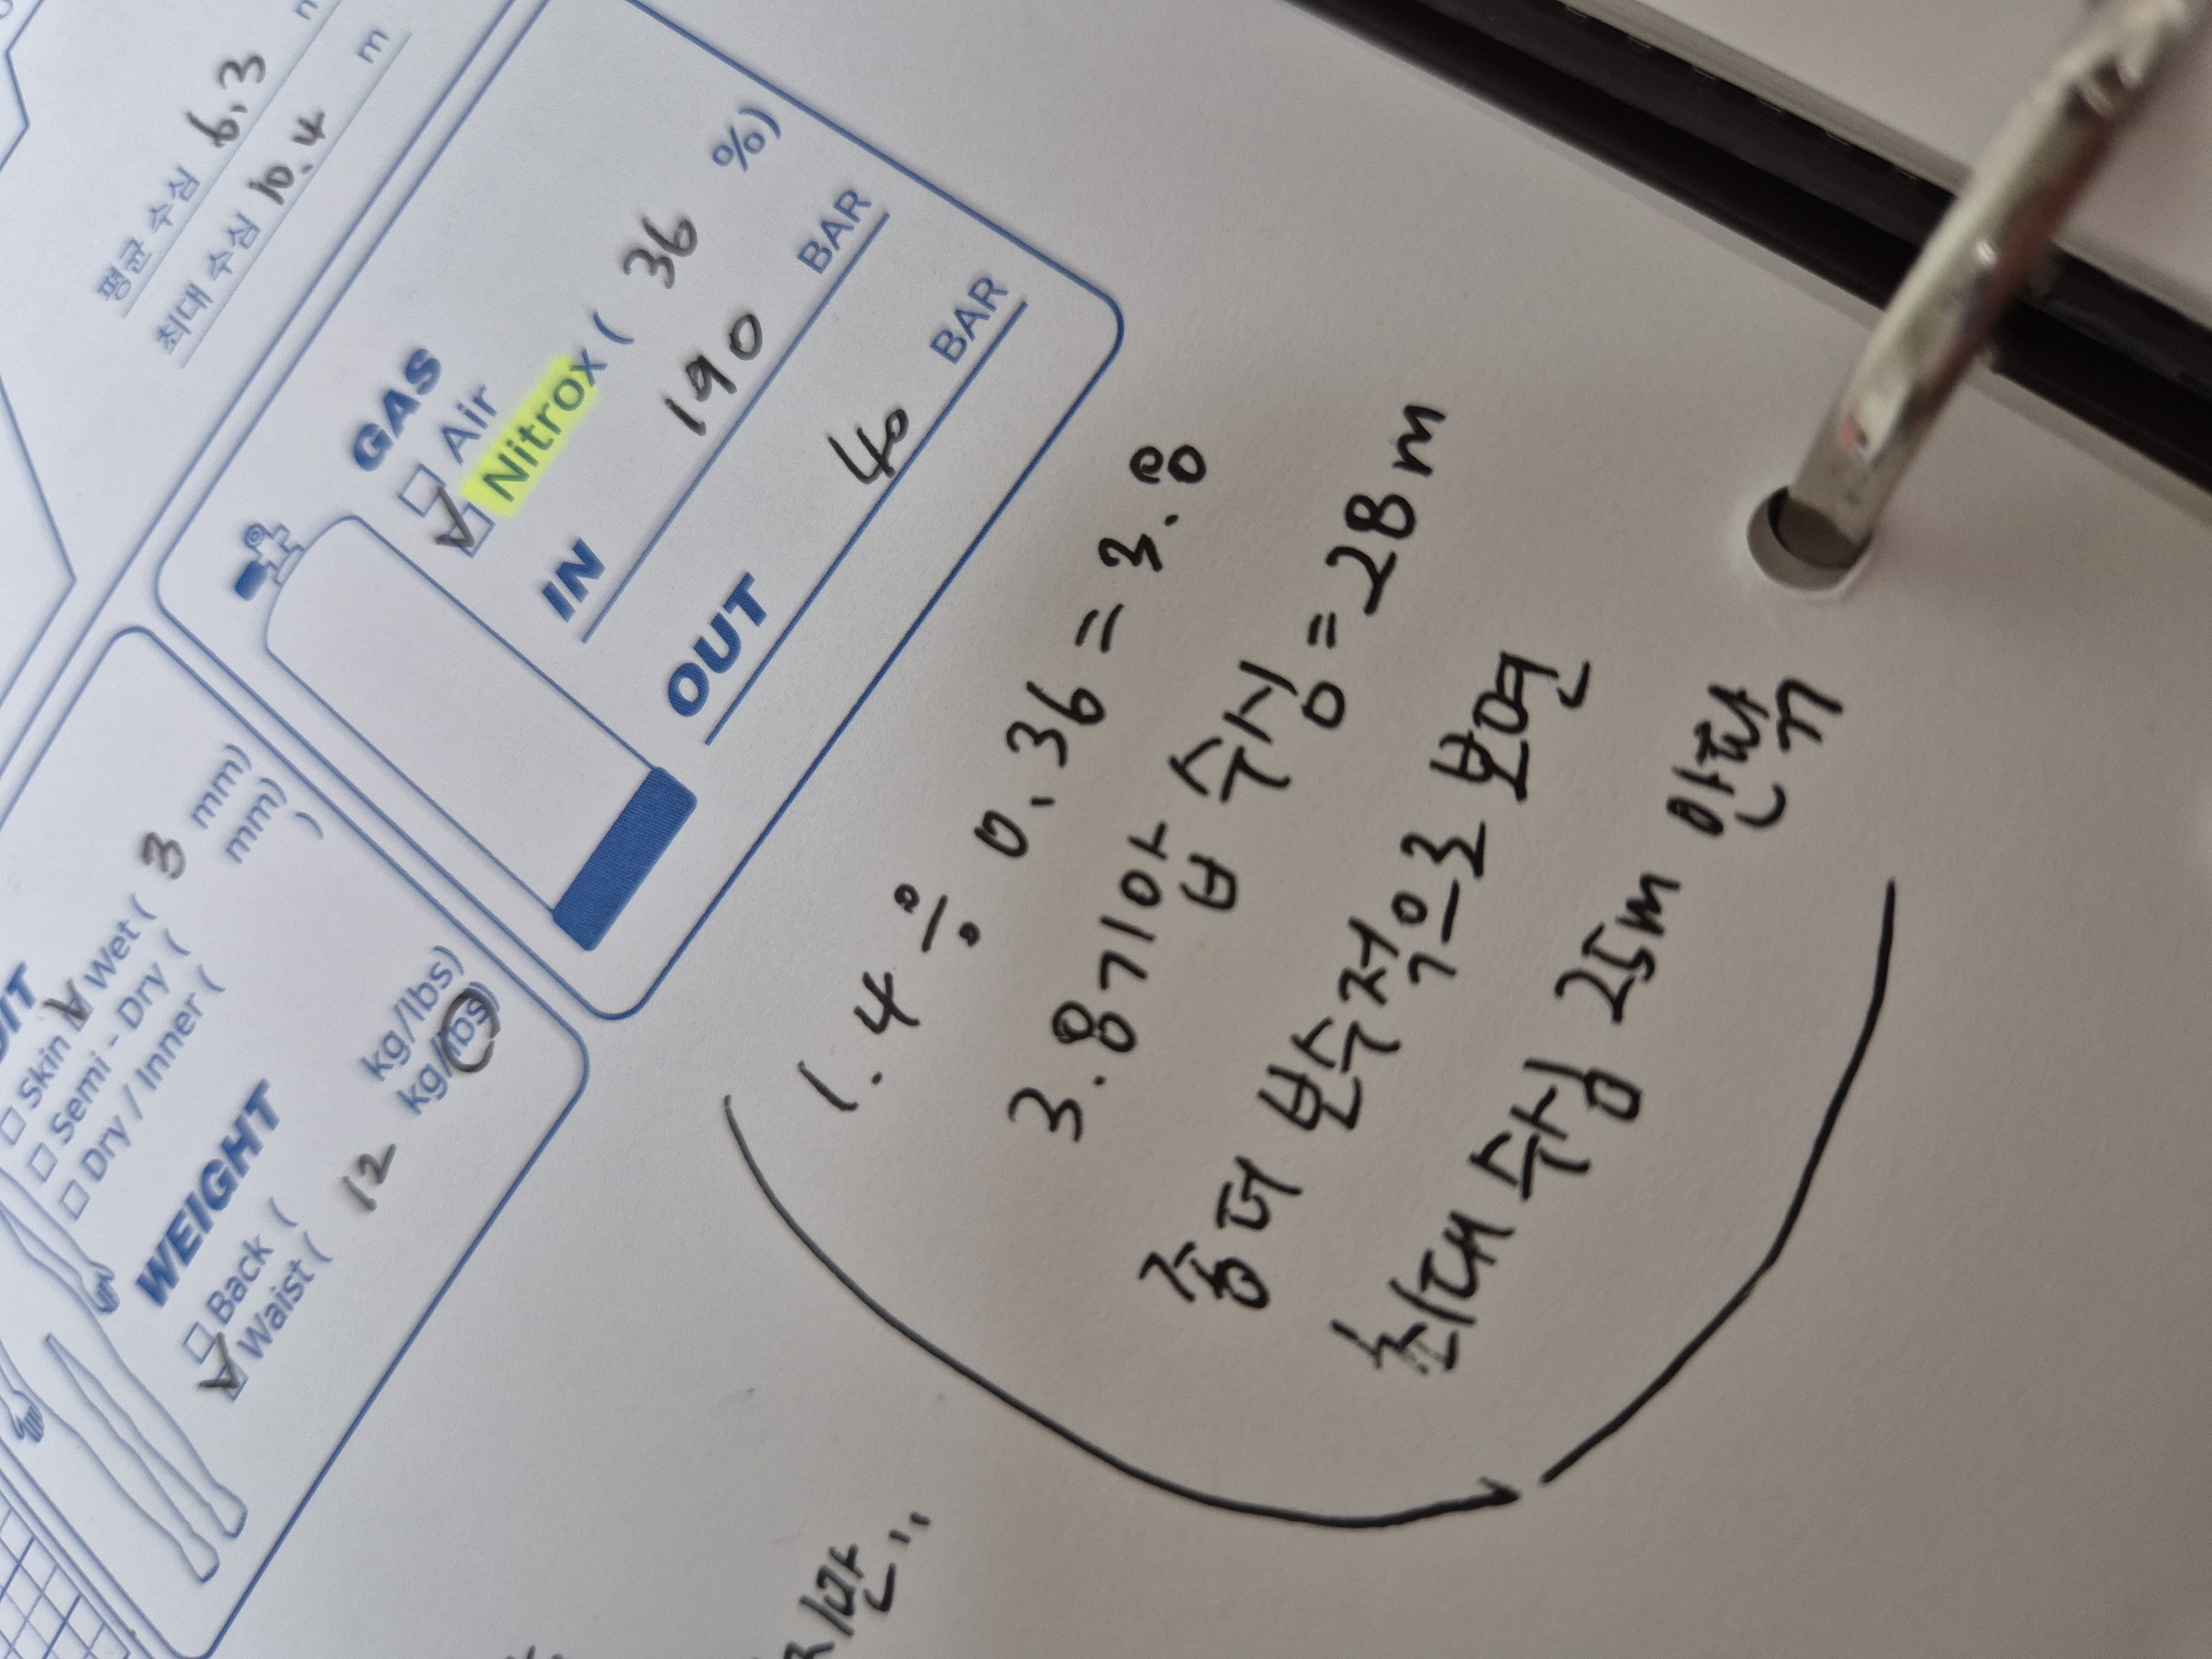 평균 수심 6.3
최대 수심 10.4 m
Skin
Wet ( 3 mm)
Semi - Dry ( mm)
Dry / Inner ( )
WEIGHT
Back ( kg/lbs)
Waist ( 12 kg/lbs)
GAS
Air
Nitrox ( 36 %)
IN 190 BAR
OUT 40 BAR
1.4 ÷ 0.36 = 3.8
3.8기압 수심 = 28m
좀더 보수적으로 보면
최대 수심 25m 안팎